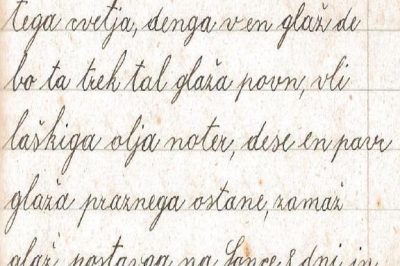 tega cvetja, denga v en glaž de
bo ta treh tal glaža povn, vli
laškiga olja noter, dese en parr
glaža praznega ostane, zamaž
glaž, postavga na Sonce 8 dni in